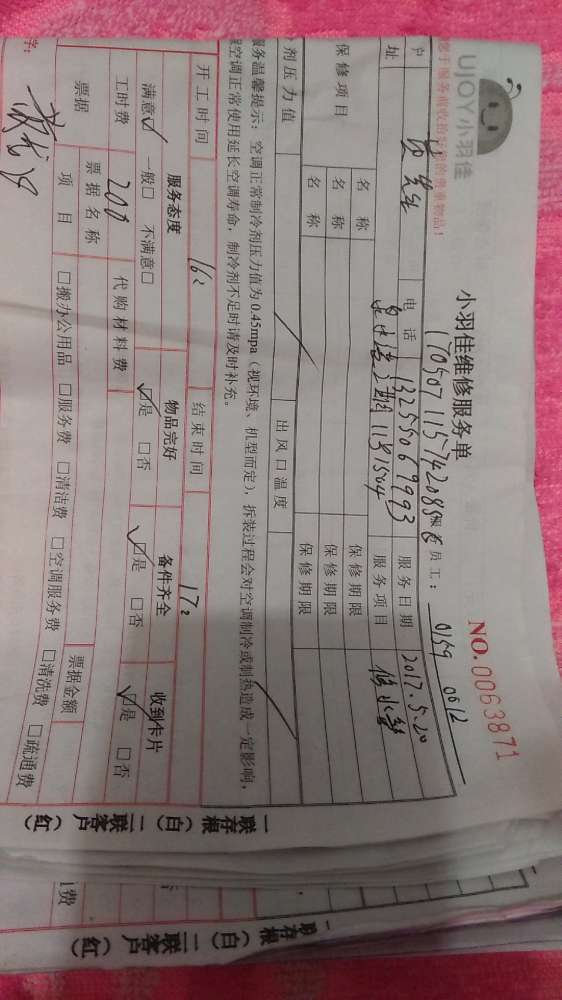 UJOY小羽佳
小羽佳维修服务单
NO.0063871
您于服务前收的好您的贵重物品!
170507115742085 服务员工: 0159 0012
户 先生 电话 13255069993 服务日期 2017.5.20
址 1131504 服务项目 修水管
保修项目 名称 保修期限
名称 保修期限
名称 保修期限
剂压力值 出风口温度
服务温馨提示: 空调正常制冷剂压力值为0.45mpa(视环境、机型而定), 拆装过程会对空调制冷或制热造成一定影响,
空调正常使用延长空调寿命, 制冷剂不足时请及时补充。
开工时间 16: 结束时间 17:
服务态度 物品完好 备件齐全 收到卡片
满意☑ 一般□ 不满意□ ☑是 □否 ☑是 □否 ☑是 □否
工时费 200 代购材料费
票据 票据名称 票据金额
项目 □搬办公用品 □服务费 □清洁费 □空调服务费 □清洗费 □疏通费
字:
一联存根(白) 二联客户(红)
费
一联存根(白) 二联客户(红)